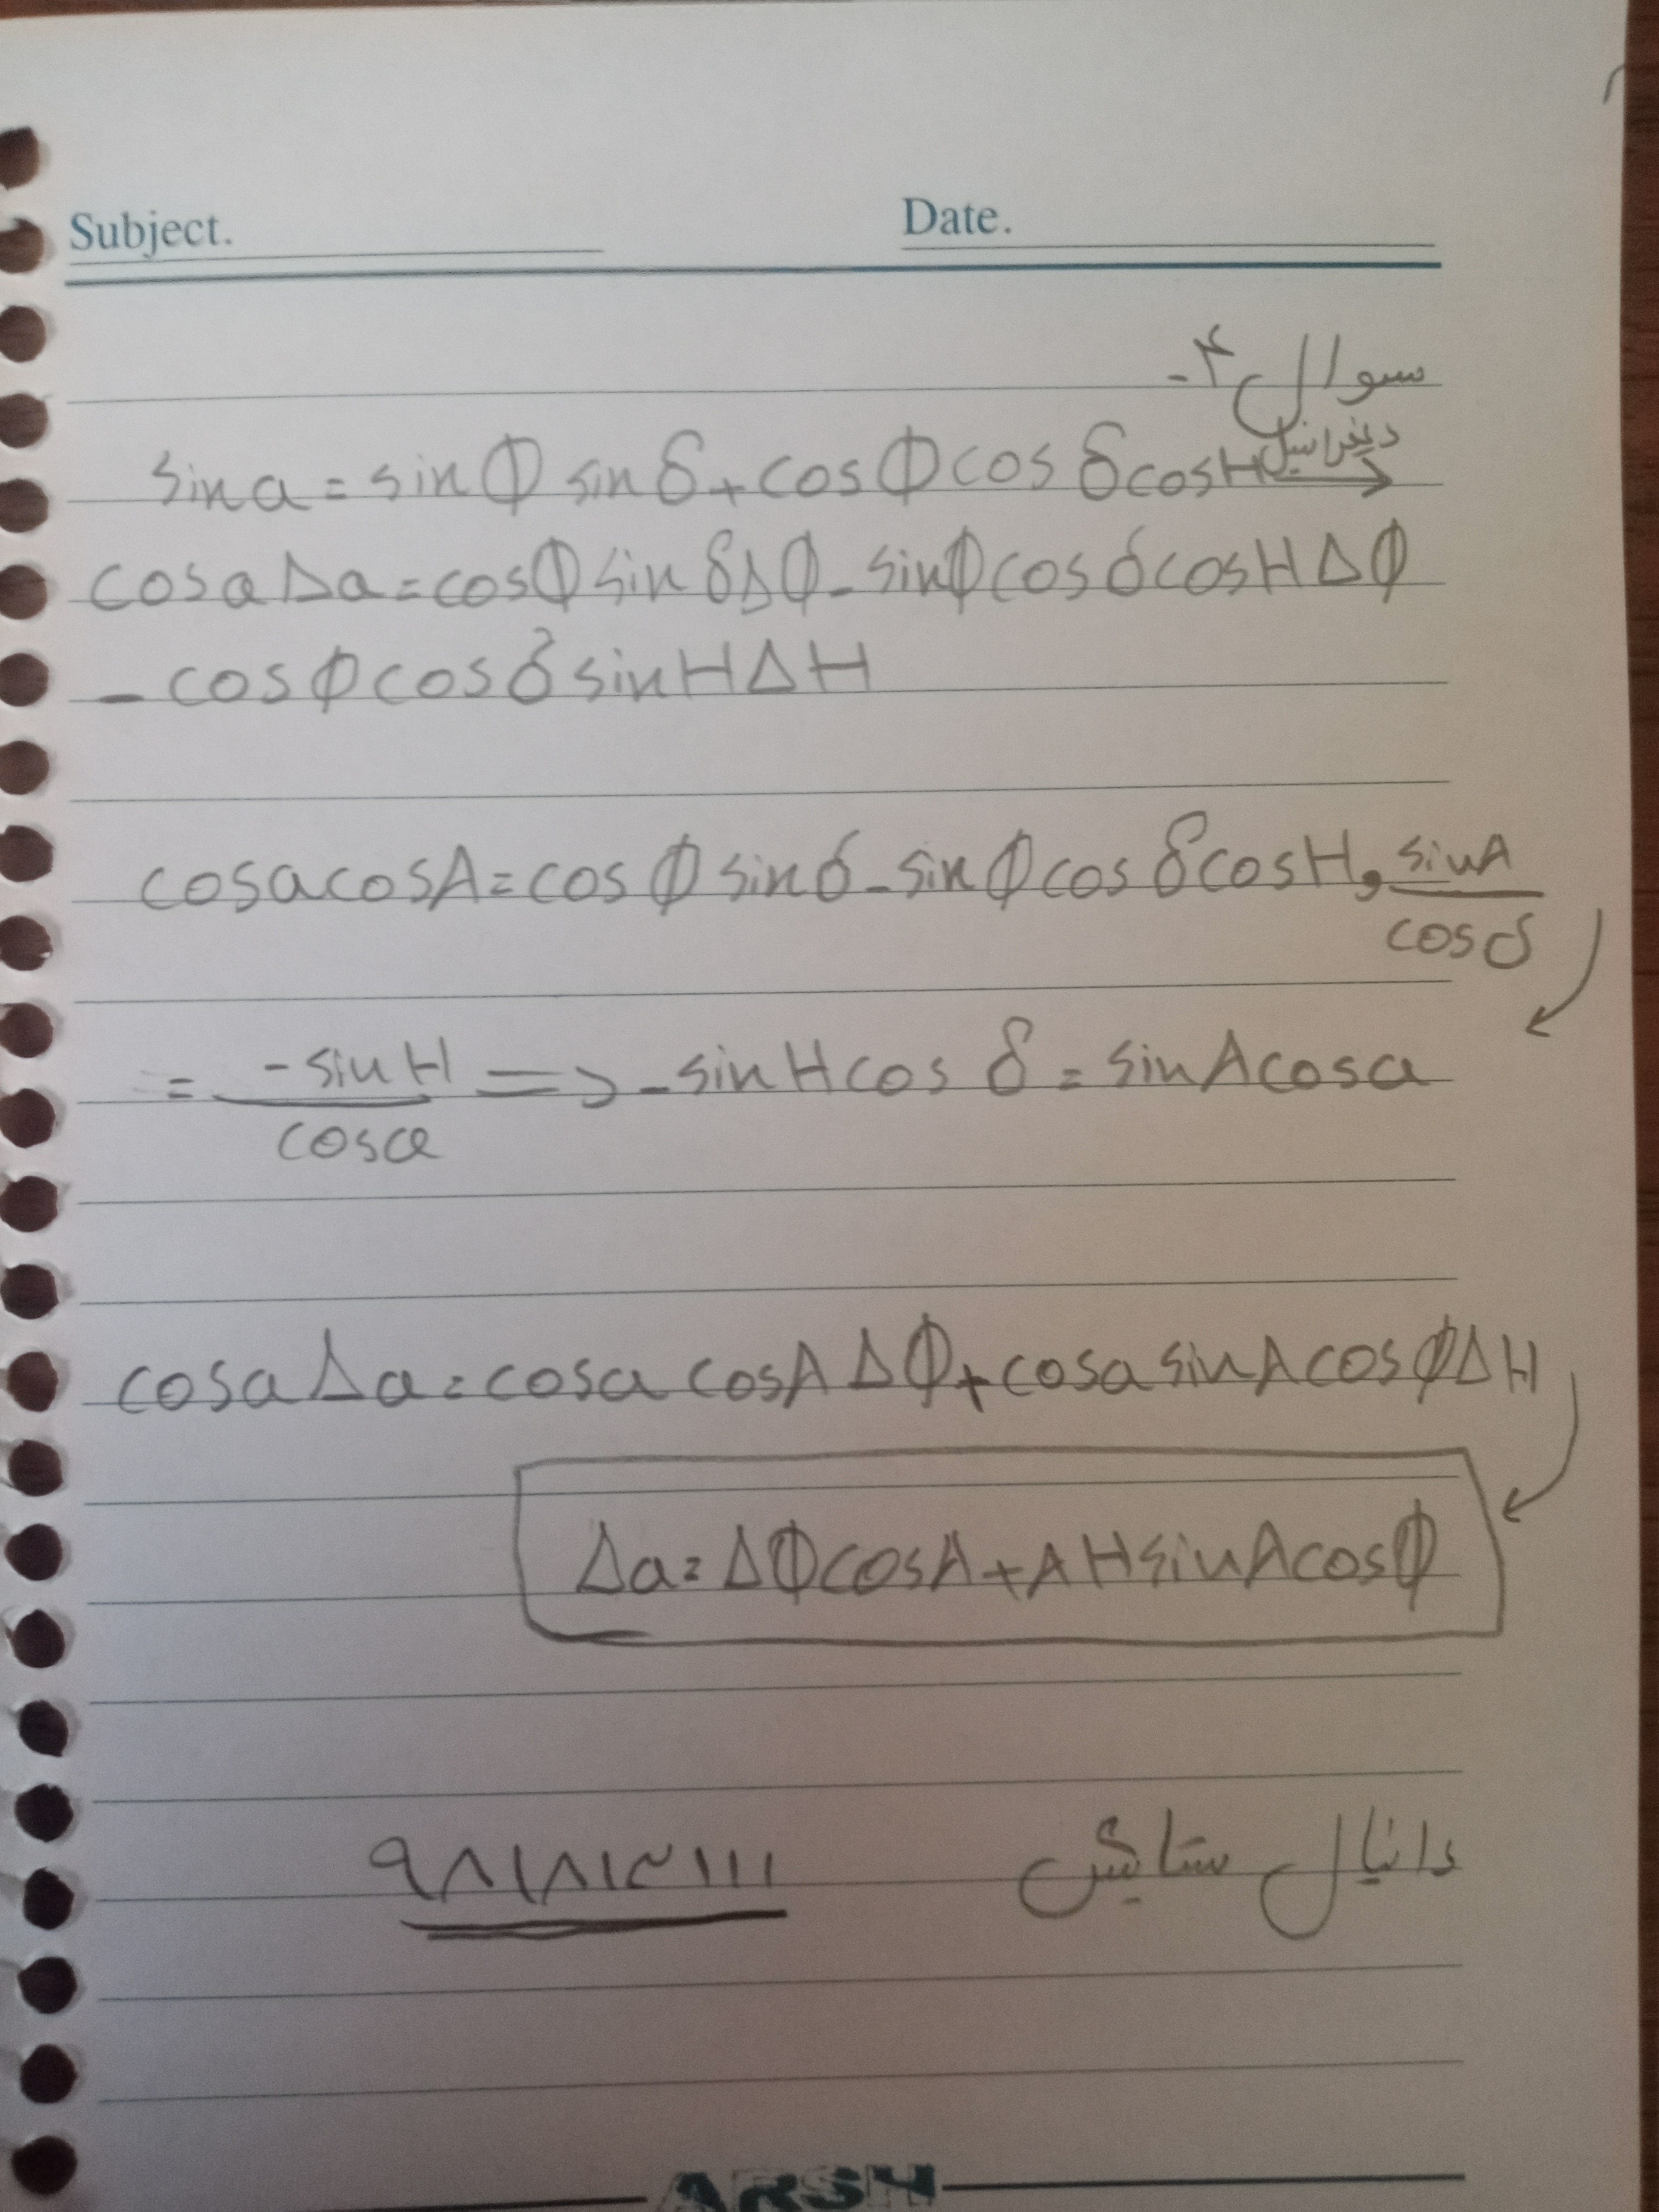 Subject. Date.
سوال ۴-
sin a = sin Φ sin δ + cos Φ cos δ cos H دیفرانسیل →
cos a Δa = cos Φ sin δ ΔΦ - sin Φ cos δ cos H ΔΦ
- cos Φ cos δ sin H ΔH
cos a cos A = cos Φ sin δ - sin Φ cos δ cos H , sin A / cos δ
= -sin H / cos a => - sin H cos δ = sin A cos a
cos a Δa = cos a cos A ΔΦ + cos a sin A cos Φ ΔH
Δa = ΔΦ cos A + ΔH sin A cos Φ
دانیال ستایش
ARSH